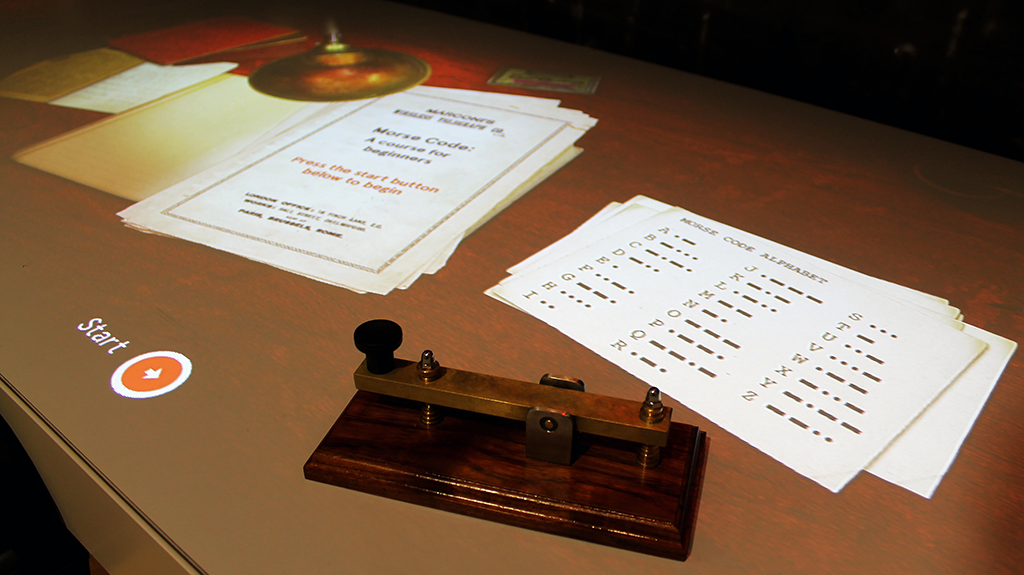 MARCONI'S
WIRELESS TELEGRAPH CO.
Morse Code:
A course for
beginners
Press the start button
below to begin
LONDON OFFICE, 18 FINCH LANE, E.C.
WORKS: HALL STREET, CHELMSFORD.
PARIS, BRUSSELS, ROME.
MORSE CODE ALPHABET
A
B
C
D
E
F
G
H
I
J
K
L
M
N
O
P
Q
R
S
T
U
V
W
X
Y
Z
Start